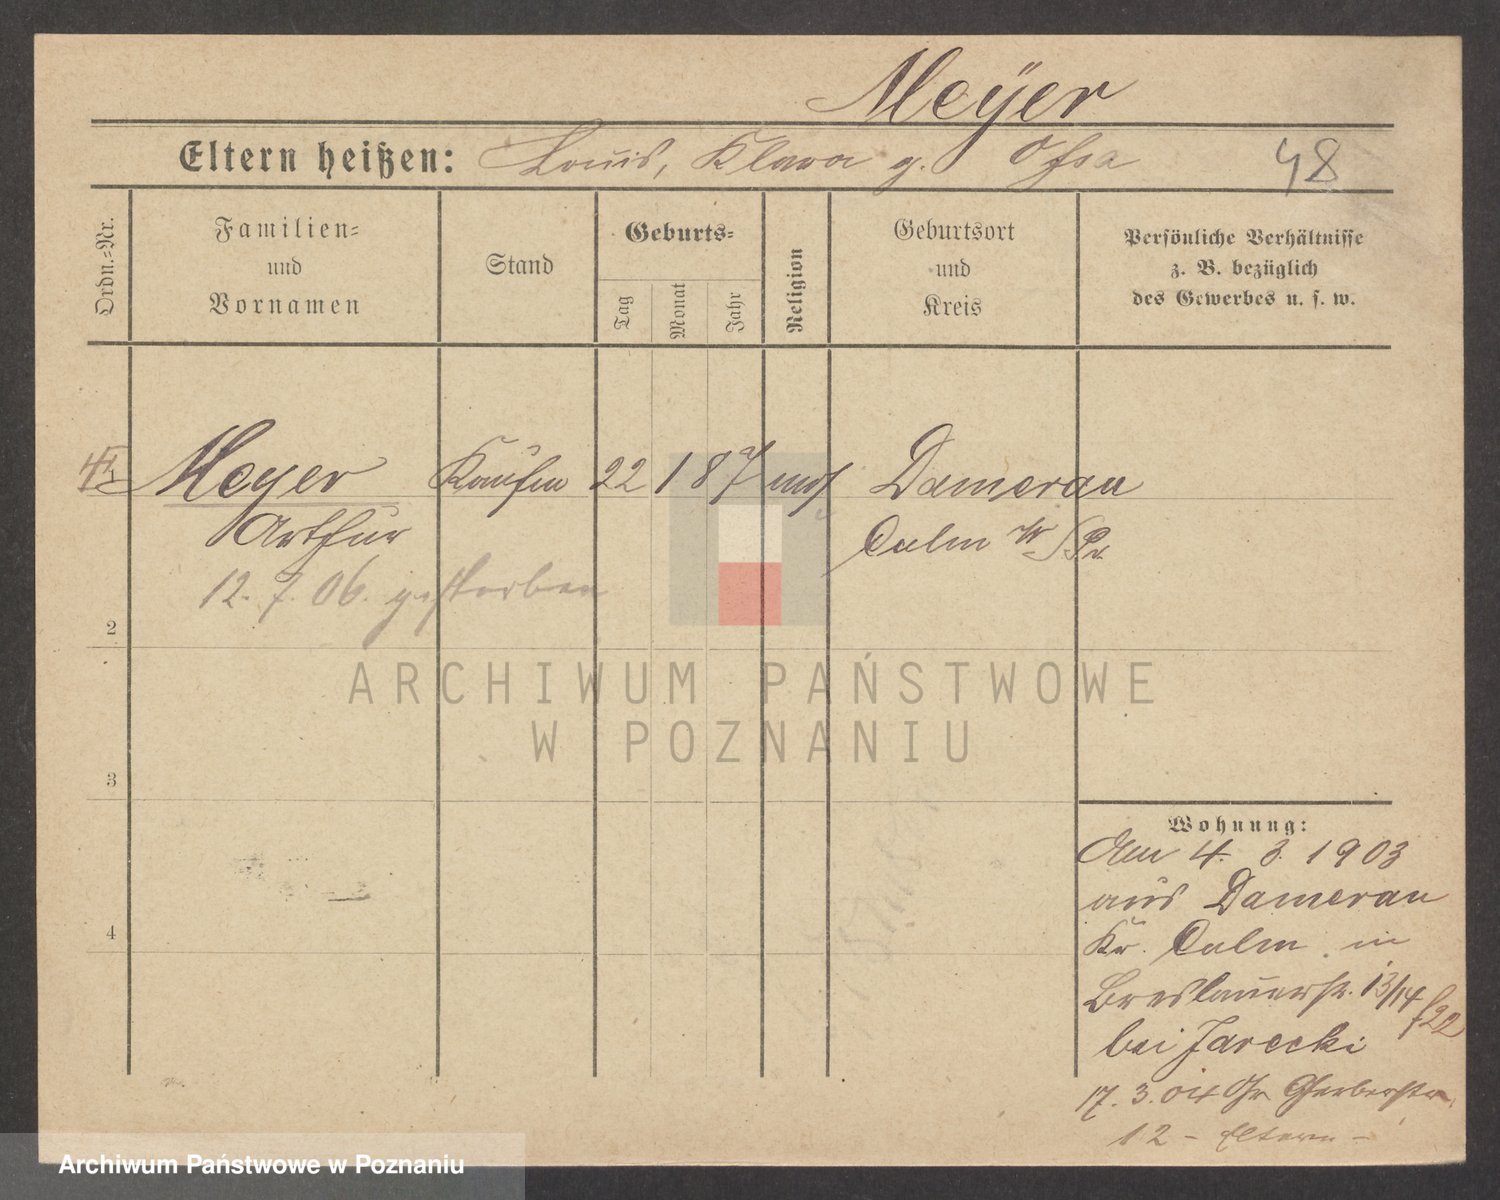 Meÿer
Eltern heißen: Louis, Klara g.
48
Ordn.=Nr.
Familien=
und
Vornamen
Stand
Geburts=
Tag
Monat
Jahr
Religion
Geburtsort
und
Kreis
Persönliche Verhältnisse
z. B. bezüglich
des Gewerbes u. s. w.
1 Meyer Kaufm 22 1 87 mos Damerau
Arthur Culm W/Pr.
12. 7. 06. gestorben
2
ARCHIWUM PAŃSTWOWE
W POZNANIU
3
Wohnung:
Am 4. 3. 1903
aus Damerau
Kr. Culm in
Breslauerstr. 13/14
f22
bei Jarecki
17. 3. 04 Gr Gerberstr.
12 - Eltern -
4
Archiwum Państwowe w Poznaniu